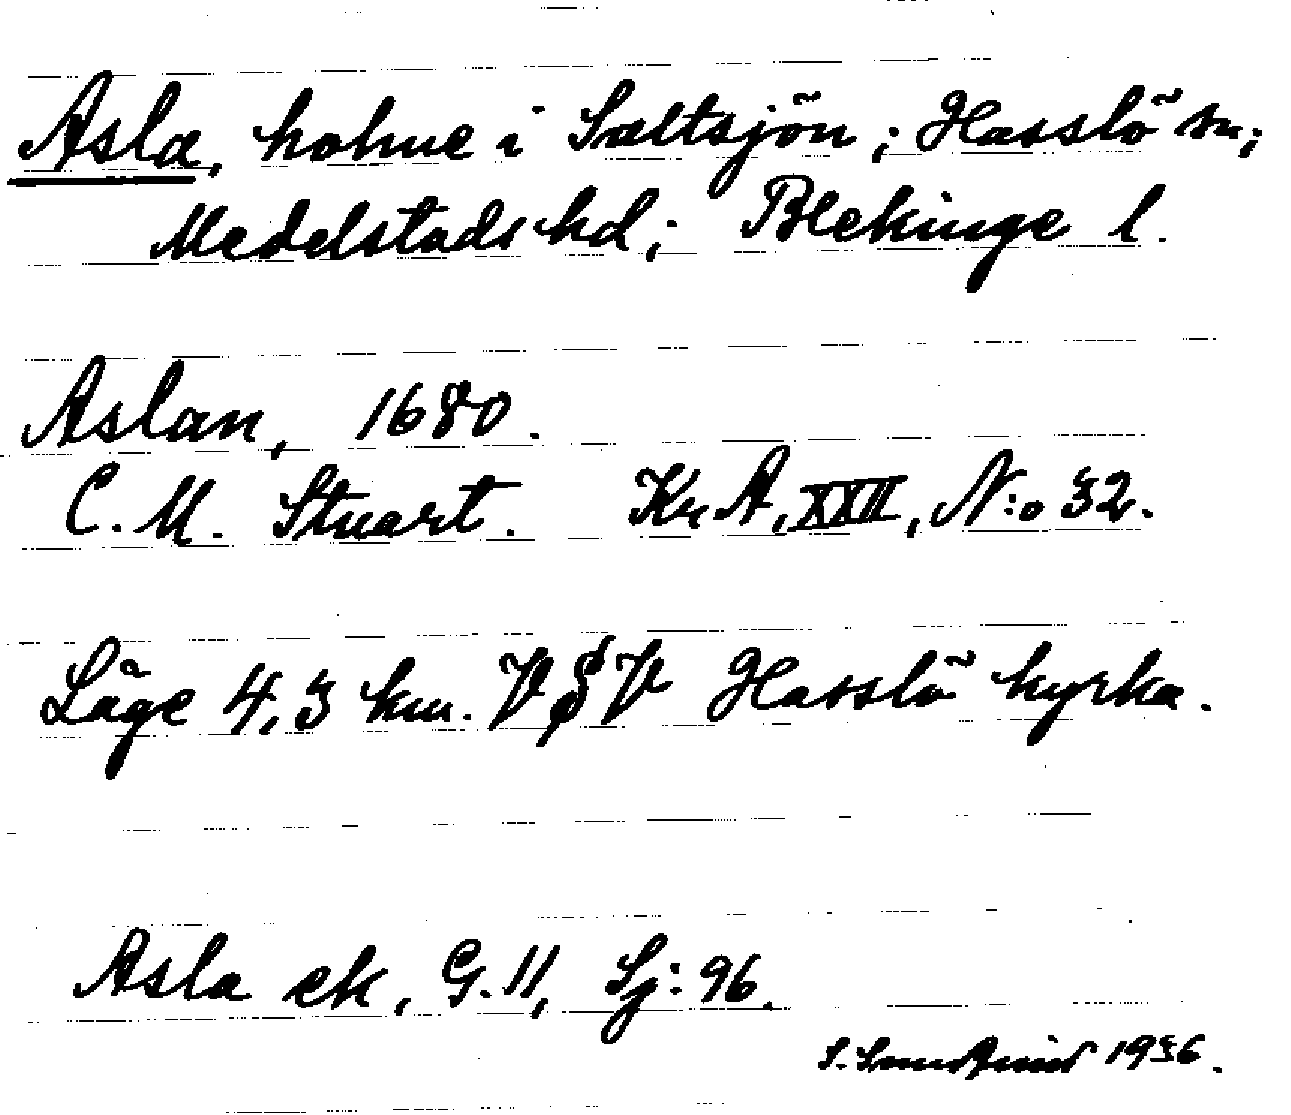 Asla, holme i Saltsjön; Hasslö sn;
Medelstads hd; Blekinge l.
Aslan, 1680.
C. M. Stuart. Kr. A, XXII, N:o 32.
Läge 4,3 km. V§V Hasslö kyrka.
Asla ek, G. 11, Sj: 96.
S. 1936.